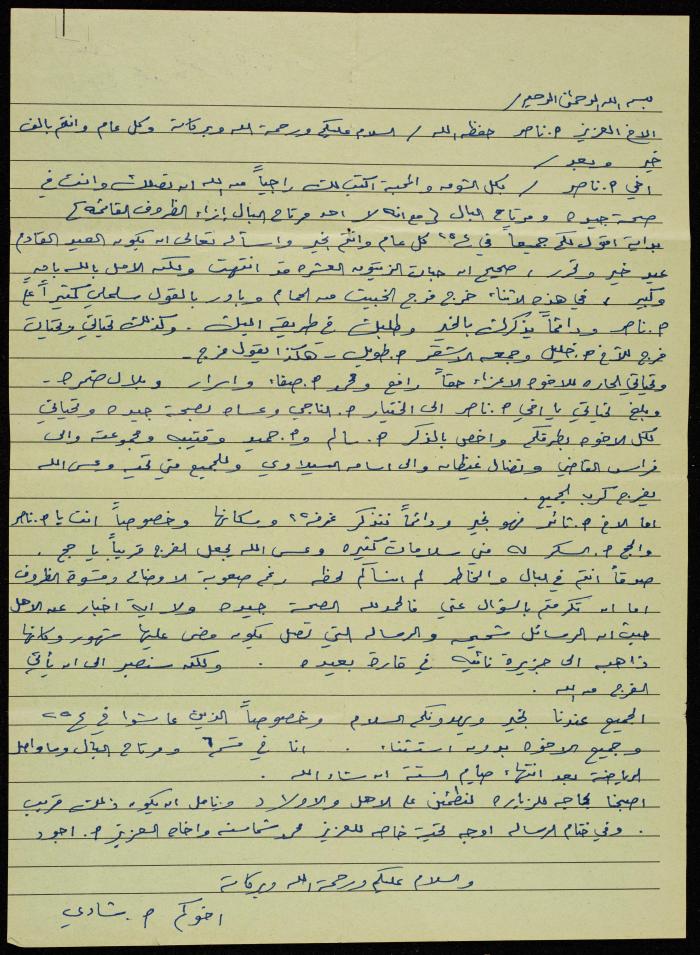 بسم الله الرحمن الرحيم /
الاخ العزيز م. ناصر حفظه الله / السلام عليكم ورحمة الله وبركاته وكل عام وانتم بالف
خير وبعد /
اخي م. ناصر / بكل الشوق والمحبة اكتب لك راجياً من الله ان تصلك وانت في
صحة جيده ومرتاح البال (مع انه لا احد مرتاح البال إزاء الظروف القائمه)
بداية اقول لكم جميعاً في غ٢٥ كل عام وانتم بخير واسأله تعالى ان يكون العيد القادم
عيد خير وتحرر ، صحيح ان حبات الزيتون العشره قد انتهت ولكن الامل بالله باقٍ
وكبير ، في هذه الاثناء خرج فرج الخبيث من الحمام وبادر بالقول سلملي كثيراً على
م. ناصر ودائماً يذكرك بالخير وطلبك في طريقه اليك . وكذلك تحياتي وتحيات
فرج للاخ م. خليل وجمعه الاشقر م. طويل - هكذا يقول فرج -
وتحياتي الحاره للاخوه الاعزاء حقاً رافع ومحمد م. صفاء وابرار وبلال ضمره -
وبلغ تحياتي يا اخي م. ناصر الى الختيار م. الناجي وعساه بصحة جيده وتحياتي
لكل الاخوه بطرفكم واخص بالذكر م. سالم وم. حميد وقتيبه ومجموعته والى
فراس القاضي ونضال غيظان والى اسامه السيلاوي وللجميع مني تحيه وعسى الله
يفرج كرب الجميع .
اما الاخ م. ثائر فهو بخير ودائماً نتذكر غرفه٢٥ وسكانها وخصوصاً انت يا م. ناصر
والحج م. السكر له مني سلامات كثيره وعسى الله يجعل الفرج قريباً يا حج .
صدقاً انتم في البال والخاطر لم انساكم لحظه رغم صعوبة الاوضاع وقسوة الظروف
اما ان تكرمتم بالسؤال عني فالحمدلله الصحة جيده ولا اية اخبار عن الاهل
حيث ان الرسائل شحيحه والرساله التي تصل يكون مضى عليها شهور وكانها
ذاهبه الى جزيرة نائيه في قارة بعيده . ولكن سنصبر الى ان يأتي
الفرج من الله .
الجميع عندنا بخير ويهدونكم السلام وخصوصاً الذين عاشوا في غ٢٥
وجميع الاخوه بدون استثناء . انا في قسم٦ ومرتاح البال وما واصل
الرياضة بعد انتهاء صيام الستة ان شاء الله .
اصبحنا بحاجه للزياره لنطمئن على الاهل والاولاد ونأمل ان يكون ذلك قريب
. وفي ختام الرساله اوجه تحية خاصه للعزيز محمد شماسنه واخاه العزيز م. اجود
والسلام عليكم ورحمة الله وبركاته
اخوكم م. شادي